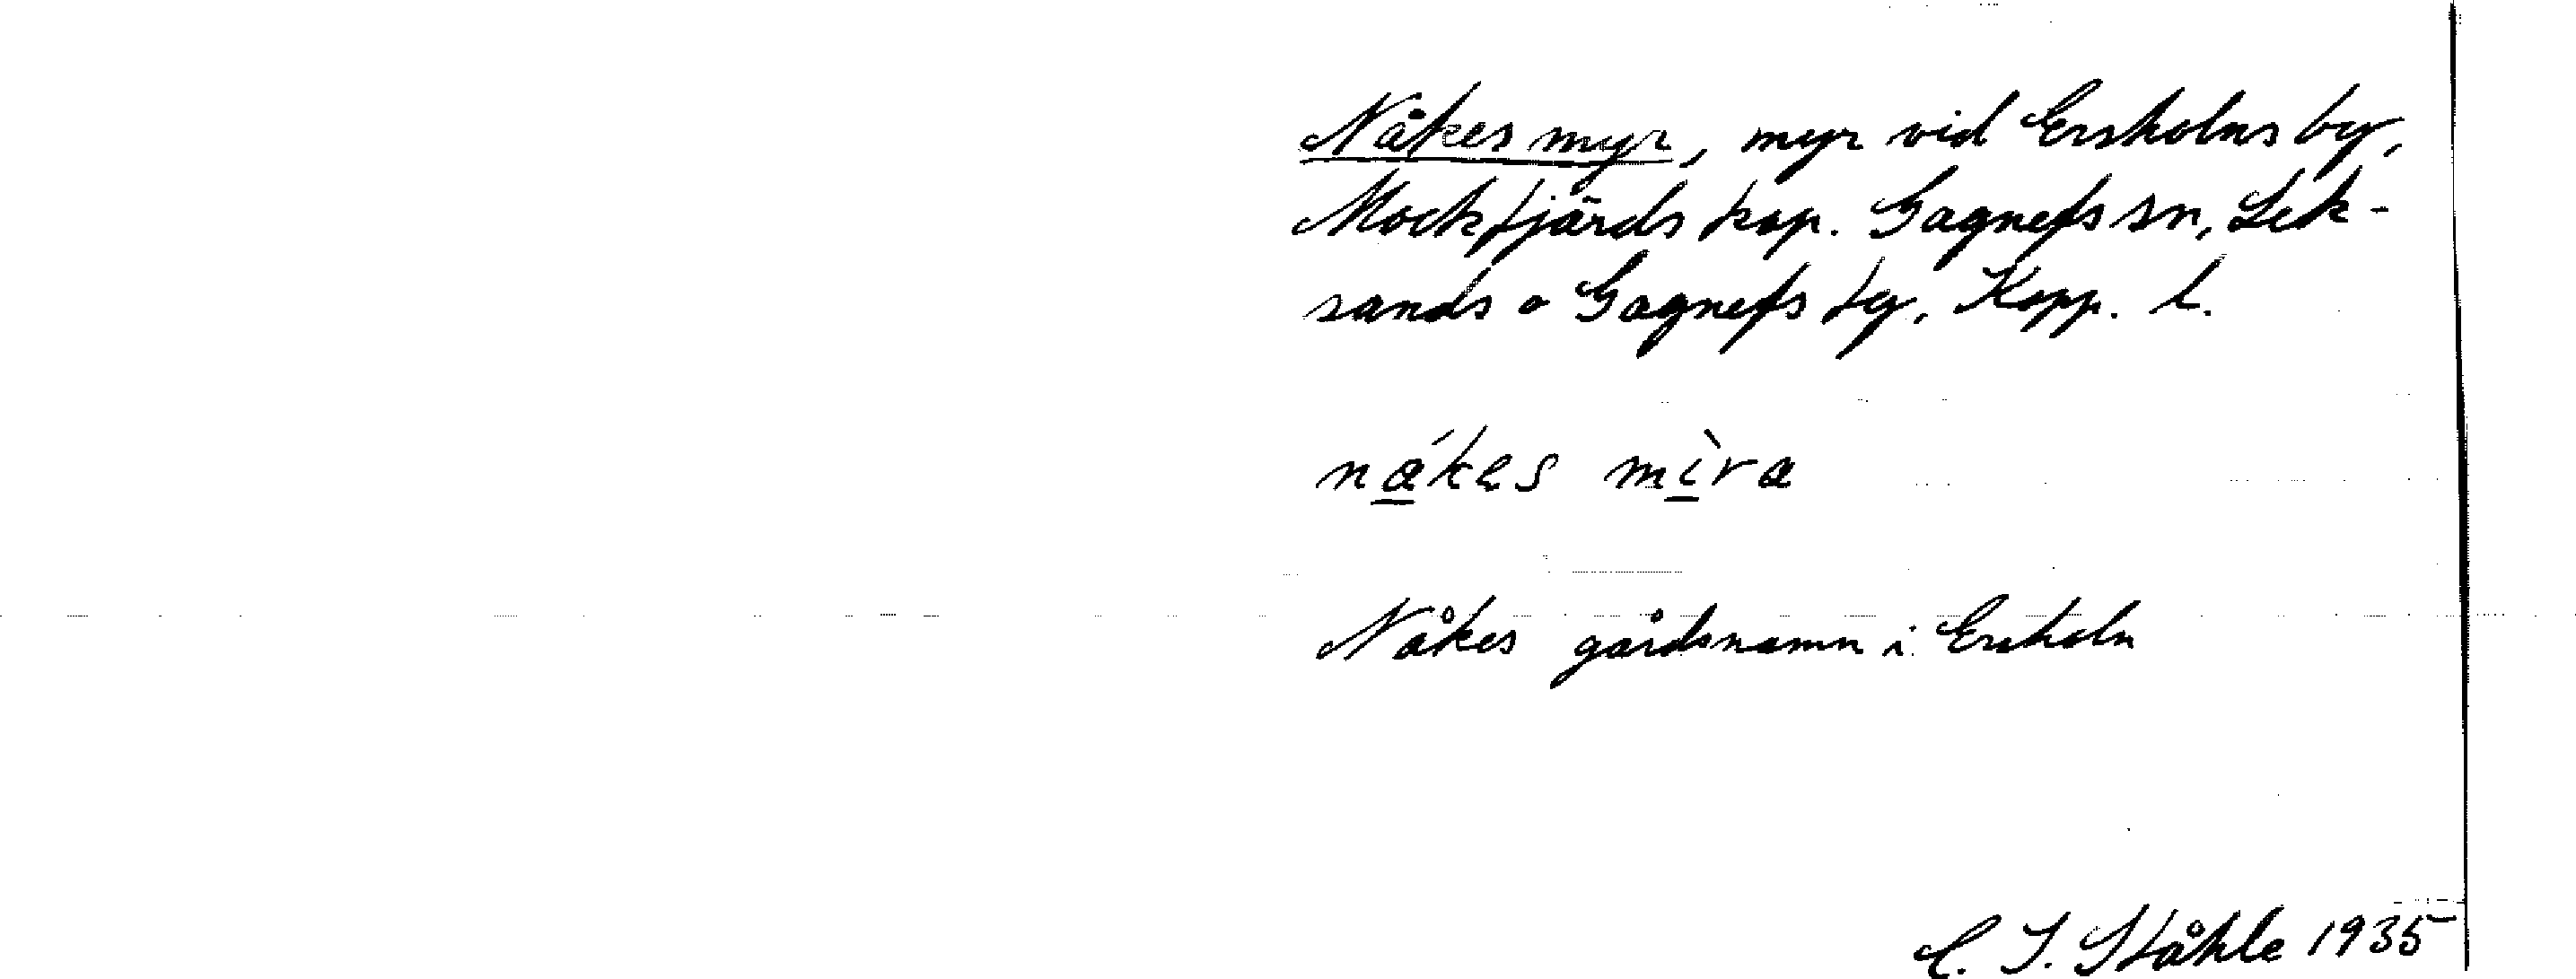 Nåkes myr, myr vid Ersholns by,
Mockfjärds kap. Gagnefs sn, Lek-
sands o Gagnefs tg, Kopp. l.
nákes mìra
Nåkes gårdsnamn i Ersholn
C. I. Ståhle 1935